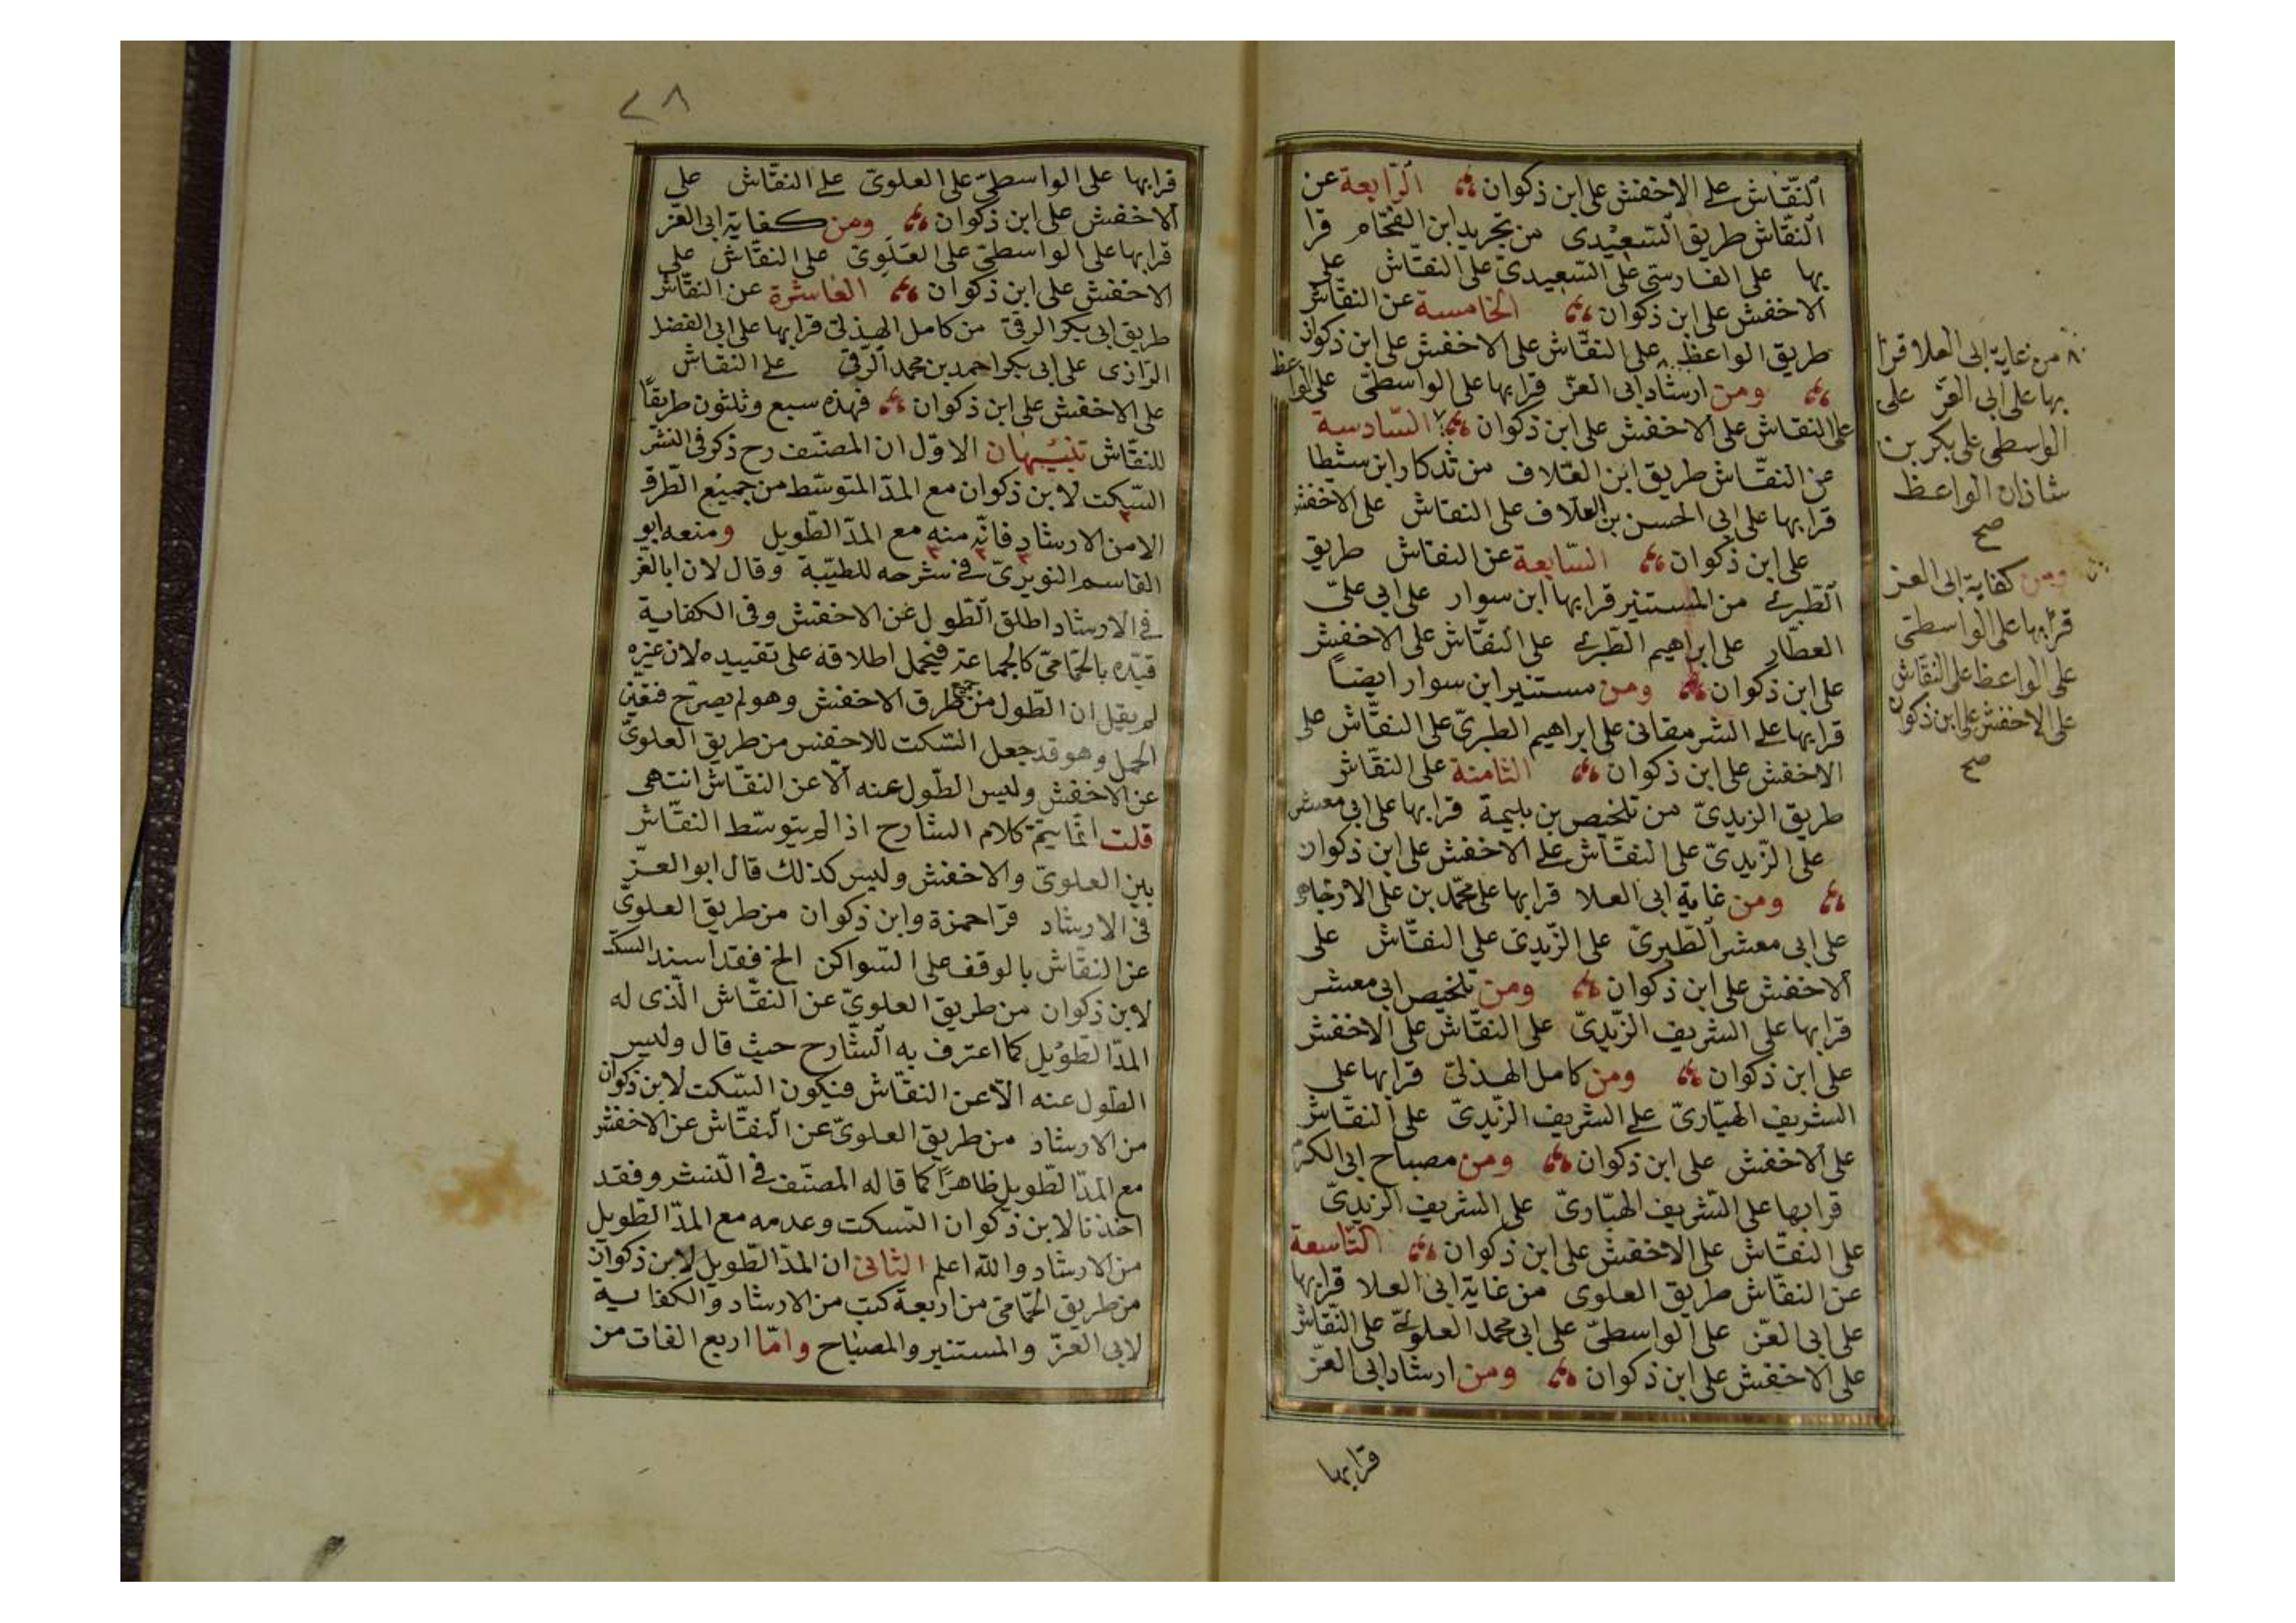 النّقّاش على الاخفش على ابن ذكوان الرّابعة عن
النّقّاش طريق السّعيدى من تجريد ابن الفحّام قرا
بها على الفارسى على السّعيدىّ على النقّاش على
الاخفش على ابن ذكوان الخامسة عن النقّاش
طريق الواعظ على النقّاش على الاخفش على ابن ذكوان
ومن ارشاد ابى العزّ قرا بها على الواسطىّ على الواعظ
على النقاش على الاخفش على ابن ذكوان السّادسة
عن النقّاش طريق ابن العّلاف من تذكار ابن شيطا
قرا بها على ابى الحسن بن العلاف على النقاش على الاخفش
على ابن ذكوان السّابعة عن النقاش طريق
الطّبرى من المستنير قرا بها ابن سوار على ابى علىّ
العطّار على ابراهيم الطّبرى على النقّاش على الاخفش
على ابن ذكوان ومن مستنير ابن سوار ايضاً
قرا بها على الشرمقانى على ابراهيم الطبرىّ على النقّاش على
الاخفش على ابن ذكوان الثامنة على النقّاش
طريق الزيدىّ من تلخيص بن بليمة قرا بها على ابى معشر
على الزّيدىّ على النقّاش على الاخفش على ابن ذكوان
ومن غاية ابى العلا قرا بها على محمّد بن على الارجاهى
على ابى معشر الطّبرىّ على الزّيدى على النقّاش على
الاخفش على ابن ذكوان ومن تلخيص ابى معشر
قرا بها على الشريف الزّيدىّ على النقّاش على الاخفش
على ابن ذكوان ومن كامل الهذلىّ قرا بها على
الشريف الهبّارىّ على الشريف الزّيدىّ على النقّاش
على الاخفش على ابن ذكوان ومن مصباح ابى الكرم
قرا بها على الشّريف الهبّارىّ على الشريف الزيدىّ
على النقّاش على الاخفش على ابن ذكوان التّاسعة
عن النقّاش طريق العلوى من غاية ابى العلا قرا بها
على ابى العّز على الواسطىّ على ابى محمد العلوىّ على النّقاش
على الاخفش على ابن ذكوان ومن ارشاد ابى العزّ
قرا بها
من غاية ابى العلا قرا
بها على ابى العزّ على
الواسطى على بكر بن
شاذان الواعظ
صح
ومن كفاية ابى العز
قرا بها على الواسطى
على الواعظ على النقّاش
على الاخفش على ابن ذكوان
صح
٢٨
قرا بها على الواسطىّ على العلوىّ على النقّاش على
الاخفش على ابن ذكوان ومن كفاية ابى العّز
قرا بها على الواسطىّ على العَلَوِىّ على النقّاش على
الاخفش على ابن ذكوان العاشرة عن النقّاش
طريق ابى بكر الرقّى من كامل الهذلى قرا بها على ابى الفضل
الرّازى على ابى بكر احمد بن محمد الرّقى على النقاش
على الاخفش على ابن ذكوان فهذه سبع وثلثون طريقاً
للنقّاش تنبيهان الاوّل ان المصنّف رح ذكر فى النشر
السّكت لابن ذكوان مع المدّ المتوسّط من جميع الطّرق
الا من الارشاد فانّه منه مع المدّ الطّويل ومنعه ابو
القاسم النويرىّ فى شرحه للطيّبة وقال لان ابا العّز
فى الارشاد اطلق الطّول عن الاخفش وفى الكفاية
قيّده بالحمّامىّ كالجماعة فيحمل اطلاقه على تقييده لان غيره
لم يقل ان الطّول من جميع طرق الاخفش وهو لم يصرّح فتعيّن
الحمل وهو قد جعل السّكت للاخفش من طريق العلوىّ
عن الاخفش وليس الطّول عنه الّا عن النقّاش انتهى
قلت انّما يتمّ كلام الشارح اذا لم يتوسّط النقّاش
بين العلوىّ والاخفش وليس كذلك قال ابو العزّ
فى الارشاد قرا حمزة وابن ذكوان من طريق العلوىّ
عن النقّاش بالوقف على السّواكن الخ فقد اسند السكت
لابن ذكوان من طريق العلوىّ عن النقّاش الّذى له
المدّ الطّويل كما اعترف به الشّارح حيث قال وليس
الطّول عنه الّا عن النقّاش فيكون السّكت لابن ذكوان
من الارشاد من طريق العلوىّ عن النقّاش عن الاخفش
مع المدّ الطّويل ظاهرًا كما قاله المصنّف فى النّشر وفقد
اخذنا لابن ذكوان السّكت وعدمه مع المدّ الطّويل
من الارشاد والله اعلم الثانى ان المدّ الطّويل لابن ذكوان
من طريق الحمّامىّ من اربعة كتب من الارشاد والكفاية
لابى العزّ والمستنير والمصباح وامّا اربع الفات من